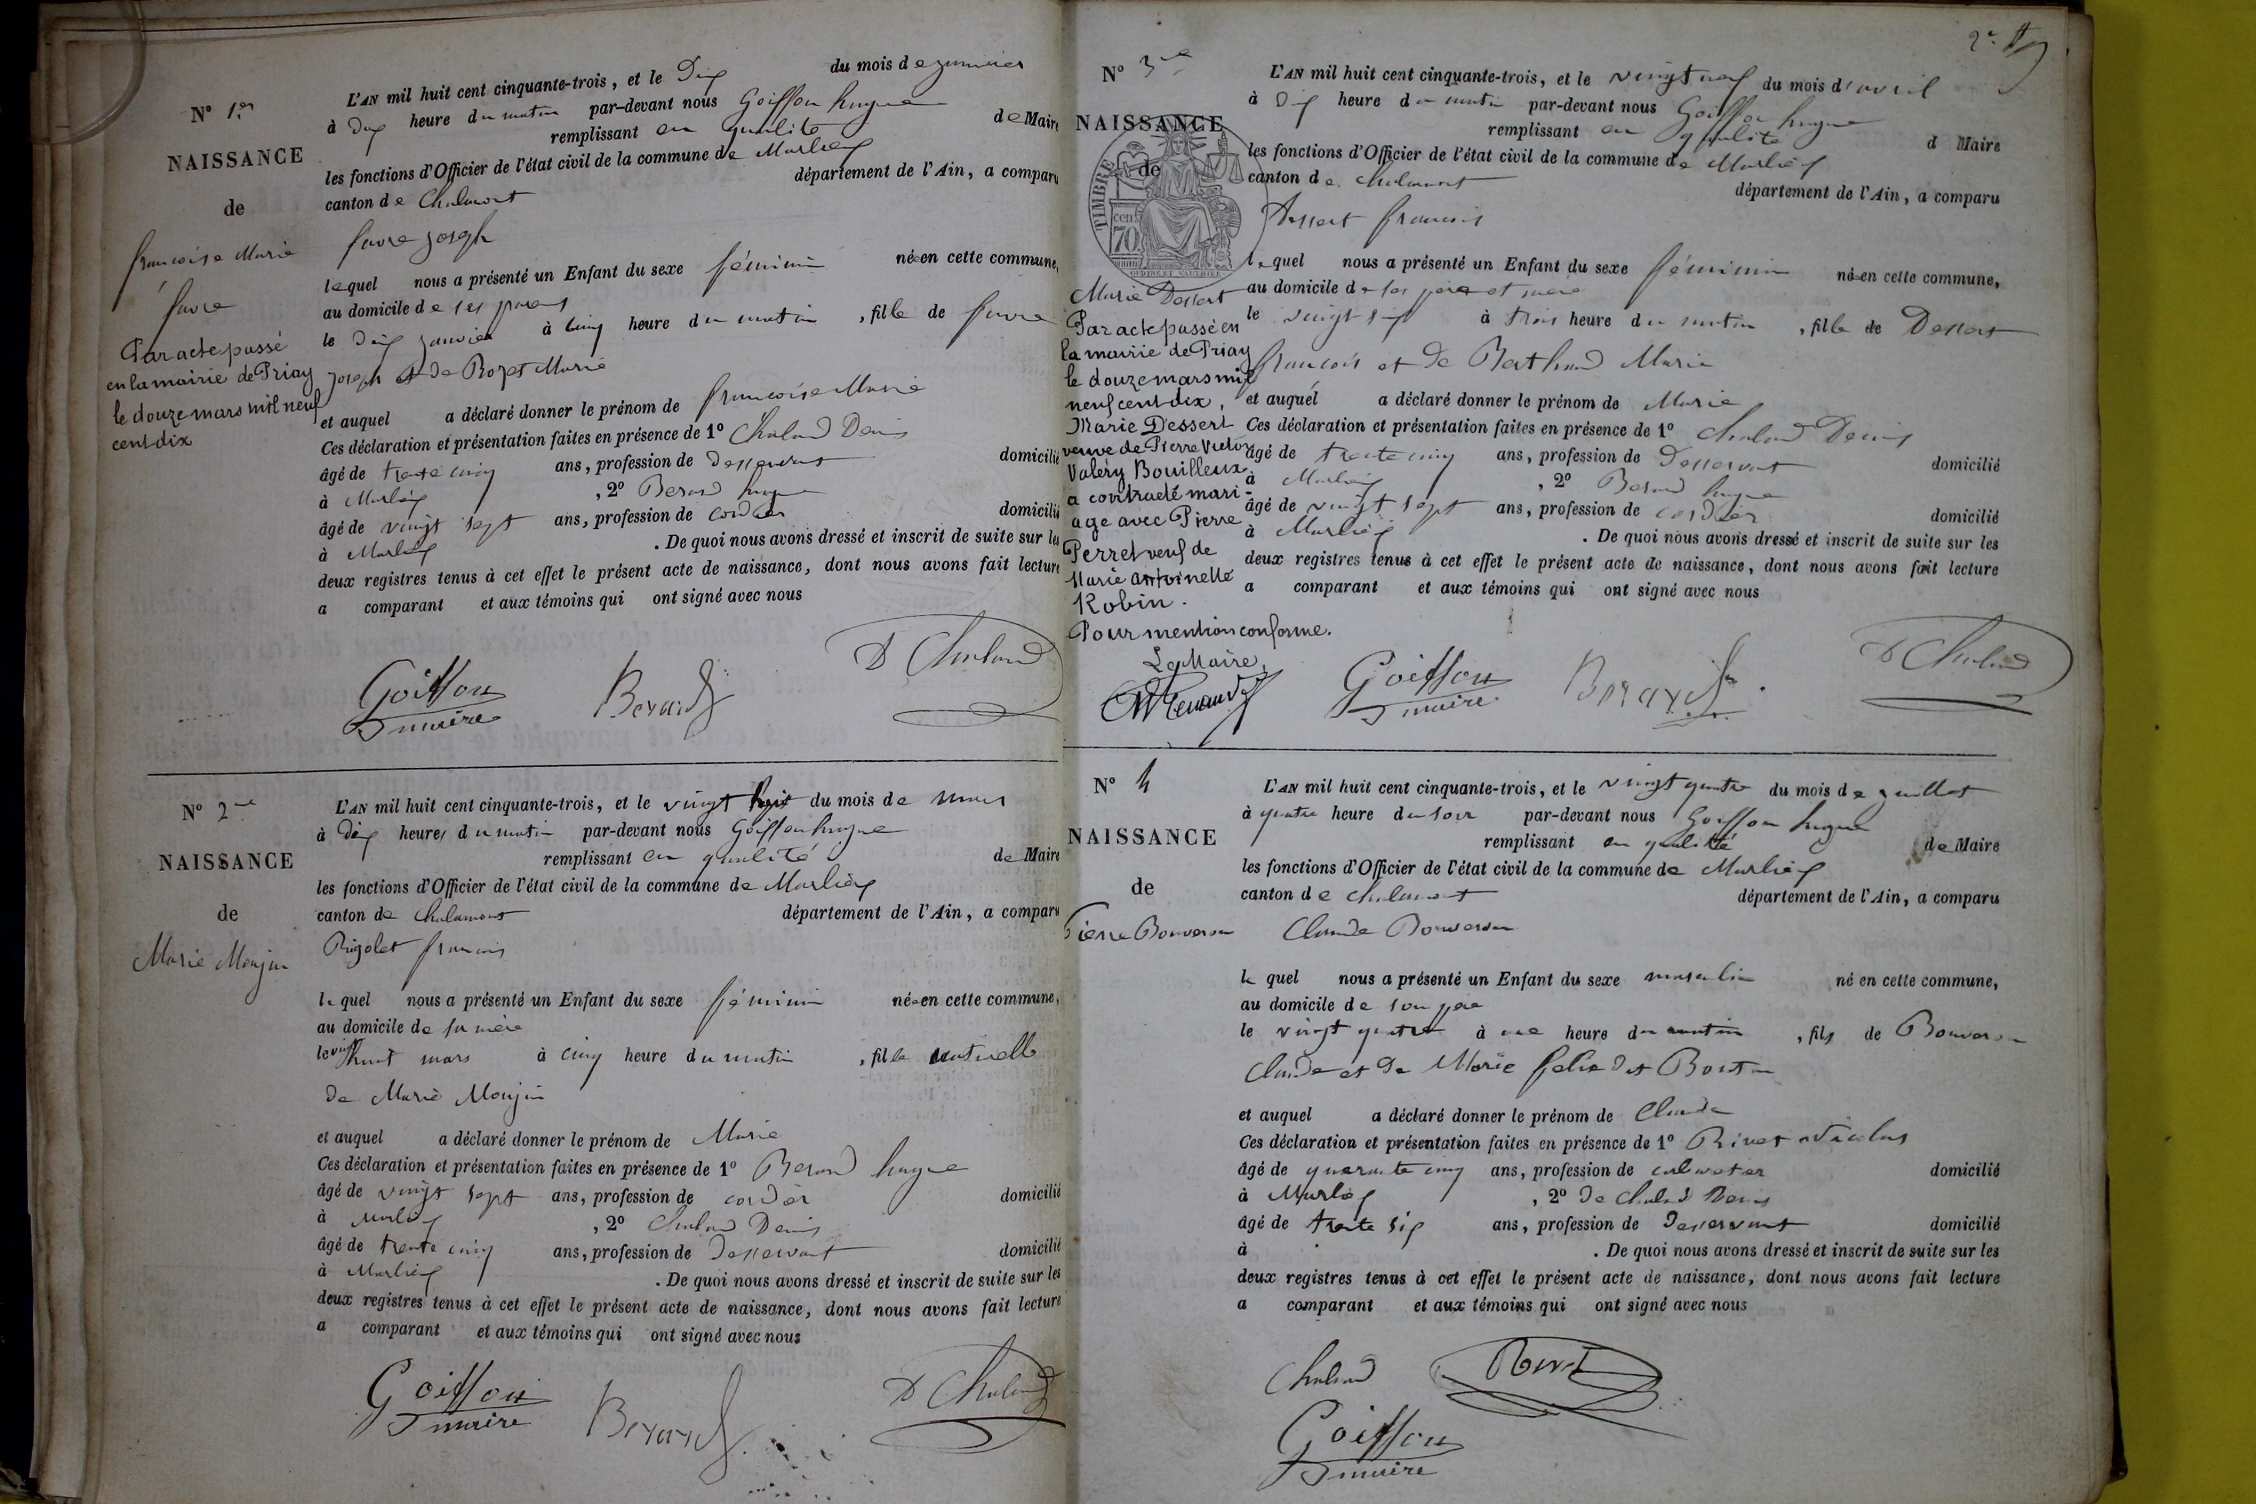 N° 1er
NAISSANCE
de
françoise Marie
favre
Par acte passé
en la mairie de Priay
le douze mars mil neuf
cent dix
L'AN mil huit cent cinquante-trois, et le Dix du mois de janvier
à dix heure du matin par-devant nous Goiffon hugue
remplissant en qualité de Maire
les fonctions d'Officier de l'état civil de la commune de Marlieux
canton de Chalamont département de l'Ain, a comparu
favre joseph
lequel nous a présenté un Enfant du sexe féminin née en cette commune,
au domicile de ses
le dix janvier à cinq heure du matin, fille de favre
joseph et de Rozet Marie
et auquel a déclaré donner le prénom de françoise Marie
Ces déclaration et présentation faites en présence de 1° Chaland Denis
âgé de trente cinq ans, profession de Desservant domicilié
à Marlieux, 2° Berard hugue
âgé de vingt sept ans, profession de cordier domicilié
à Marlieux. De quoi nous avons dressé et inscrit de suite sur les
deux registres tenus à cet effet le présent acte de naissance, dont nous avons fait lecture
a comparant et aux témoins qui ont signé avec nous
Goiffon
maire
Berard
D Chaland
N° 2me
NAISSANCE
de
Marie Monjin
L'AN mil huit cent cinquante-trois, et le vingt huit du mois de mars
à dix heures du matin par-devant nous Goiffon hugue
remplissant en qualité de Maire
les fonctions d'Officier de l'état civil de la commune de Marlieux
canton de Chalamont département de l'Ain, a comparu
Rigolet françois
lequel nous a présenté un Enfant du sexe féminin née en cette commune,
au domicile de sa mère
le vingt huit mars à cinq heure du matin, fille naturelle
de Marie Monjin
et auquel a déclaré donner le prénom de Marie
Ces déclaration et présentation faites en présence de 1° Berard hugue
âgé de vingt sept ans, profession de cordier domicilié
à Marlieux, 2° Chaland Denis
âgé de trente cinq ans, profession de Desservant domicilié
à Marlieux. De quoi nous avons dressé et inscrit de suite sur les
deux registres tenus à cet effet le présent acte de naissance, dont nous avons fait lecture
a comparant et aux témoins qui ont signé avec nous
Goiffon
maire
Berard
D Chaland
2e
N° 3me
NAISSANCE
de
TIMBRE
70 cent
Marie Dessert
Par acte passé en
la mairie de Priay
le douze mars mil
neuf cent dix,
Marie Dessert
veuve de Pierre Victor
Valéry Bouilleux
a contracté mari-
age avec Pierre
Perret veuf de
Marie Antoinette
Robin.
Pour mention conforme.
Le Maire,
L'AN mil huit cent cinquante-trois, et le vingt neuf du mois d'avril
à dix heure du matin par-devant nous Goiffon hugue
remplissant en qualité d Maire
les fonctions d'Officier de l'état civil de la commune de Marlieux
canton de Chalamont département de l'Ain, a comparu
Dessert françois
lequel nous a présenté un Enfant du sexe féminin née en cette commune,
au domicile de ses père et mère
le vingt à trois heure du matin, fille de Dessert
françois et de Berthaud Marie
et auquel a déclaré donner le prénom de Marie
Ces déclaration et présentation faites en présence de 1° Chaland Denis
âgé de trente cinq ans, profession de Desservant domicilié
à Marlieux, 2° Berard hugue
âgé de vingt sept ans, profession de cordier domicilié
à Marlieux. De quoi nous avons dressé et inscrit de suite sur les
deux registres tenus à cet effet le présent acte de naissance, dont nous avons fait lecture
a comparant et aux témoins qui ont signé avec nous
Goiffon
maire
Berard
D Chaland
N° 4
NAISSANCE
de
Pierre Bouveron
L'AN mil huit cent cinquante-trois, et le vingt quatre du mois de juillet
à quatre heure du soir par-devant nous Goiffon hugue
remplissant en qualité de Maire
les fonctions d'Officier de l'état civil de la commune de Marlieux
canton de chalamont département de l'Ain, a comparu
Claude Bouveron
le quel nous a présenté un Enfant du sexe masculin né en cette commune,
au domicile de son père
le vingt quatre à une heure du matin, fils de Bouveron
Claude et de Marie
et auquel a déclaré donner le prénom de Claude
Ces déclaration et présentation faites en présence de 1° Rivet Nicolas
âgé de quarante cinq ans, profession de cultivateur domicilié
à Marlieux, 2° de Chaland Denis
âgé de trente six ans, profession de Desservant domicilié
à . De quoi nous avons dressé et inscrit de suite sur les
deux registres tenus à cet effet le présent acte de naissance, dont nous avons fait lecture
a comparant et aux témoins qui ont signé avec nous
Chaland
Rivet
Goiffon
maire